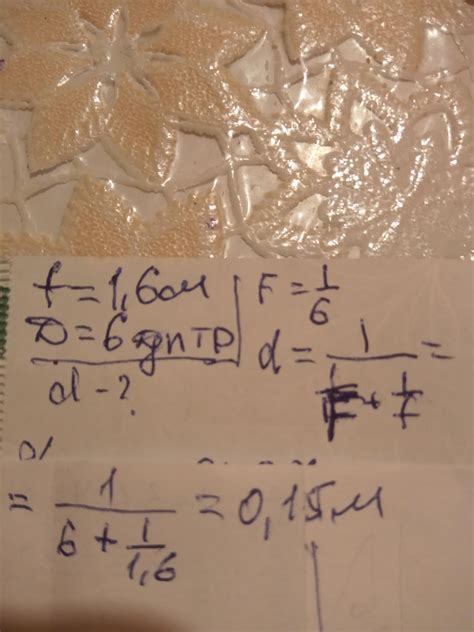 f = 1,6 см
D = 6 дптр
d - ?
F = 1/6
d = 1/(1/F + 1/f) =
= 1/(6 + 1/1,6) = 0,15 м